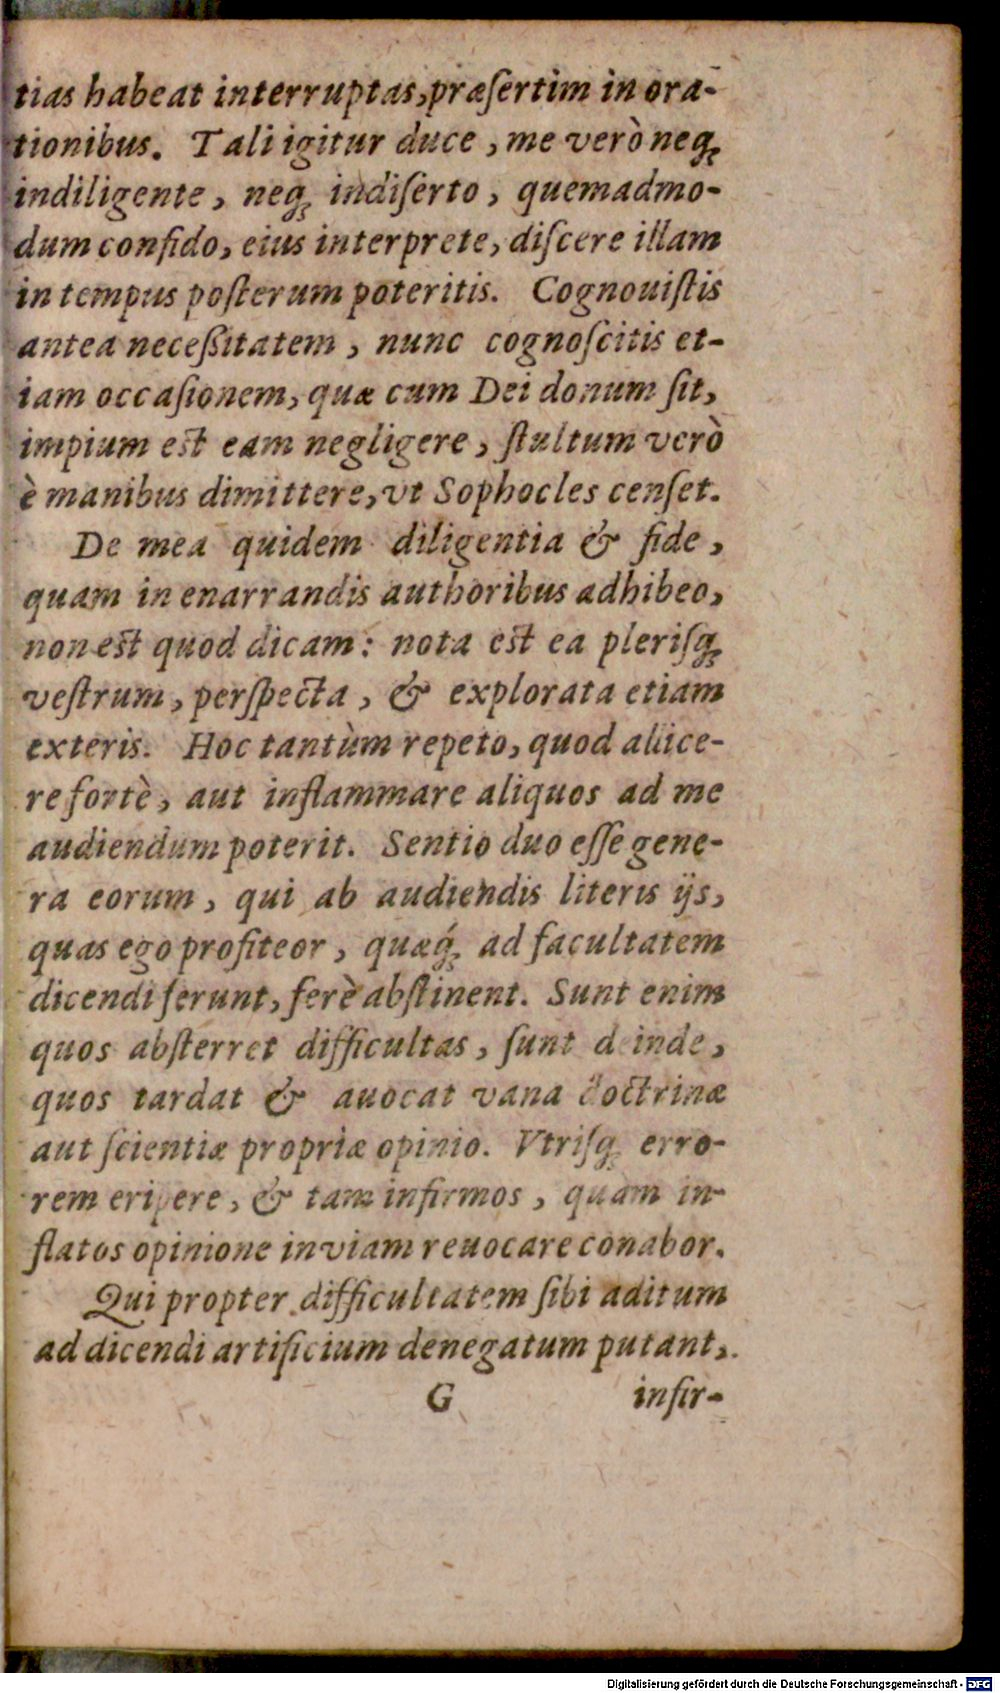 tias habeat interruptas, præſertim in ora-
tionibus. Tali igitur duce, me verò neq;
indiligente, neq; indiſerto, quemadmo-
dum confido, eius interprete, diſcere illam
in tempus poſterum poteritis. Cognouiſtis
antea neceßitatem, nunc cognoſcitis et-
iam occaſionem, quæ cum Dei donum ſit,
impium est eam negligere, ſtultum verò
è manibus dimittere, vt Sophocles cenſet.
De mea quidem diligentia & fide,
quam in enarrandis authoribus adhibeo,
non est quod dicam: nota est ea pleriſq;
veſtrum, perſpecta, & explorata etiam
exteris. Hoc tantùm repeto, quod allice-
re fortè, aut inflammare aliquos ad me
audiendum poterit. Sentio duo eſſe gene-
ra eorum, qui ab audiendis literis ijs,
quas ego profiteor, quæq́; ad facultatem
dicendi ferunt, ferè abſtinent. Sunt enim
quos abſterret difficultas, ſunt deinde,
quos tardat & auocat vana doctrinæ
aut ſcientiæ propriæ opinio. Vtriſq; erro-
rem eripere, & tam infirmos, quam in-
flatos opinione in viam reuocare conabor.
Qui propter difficultatem ſibi aditum
ad dicendi artificium denegatum putant,
G infir-
Digitalisierung gefördert durch die Deutsche Forschungsgemeinschaft - DFG